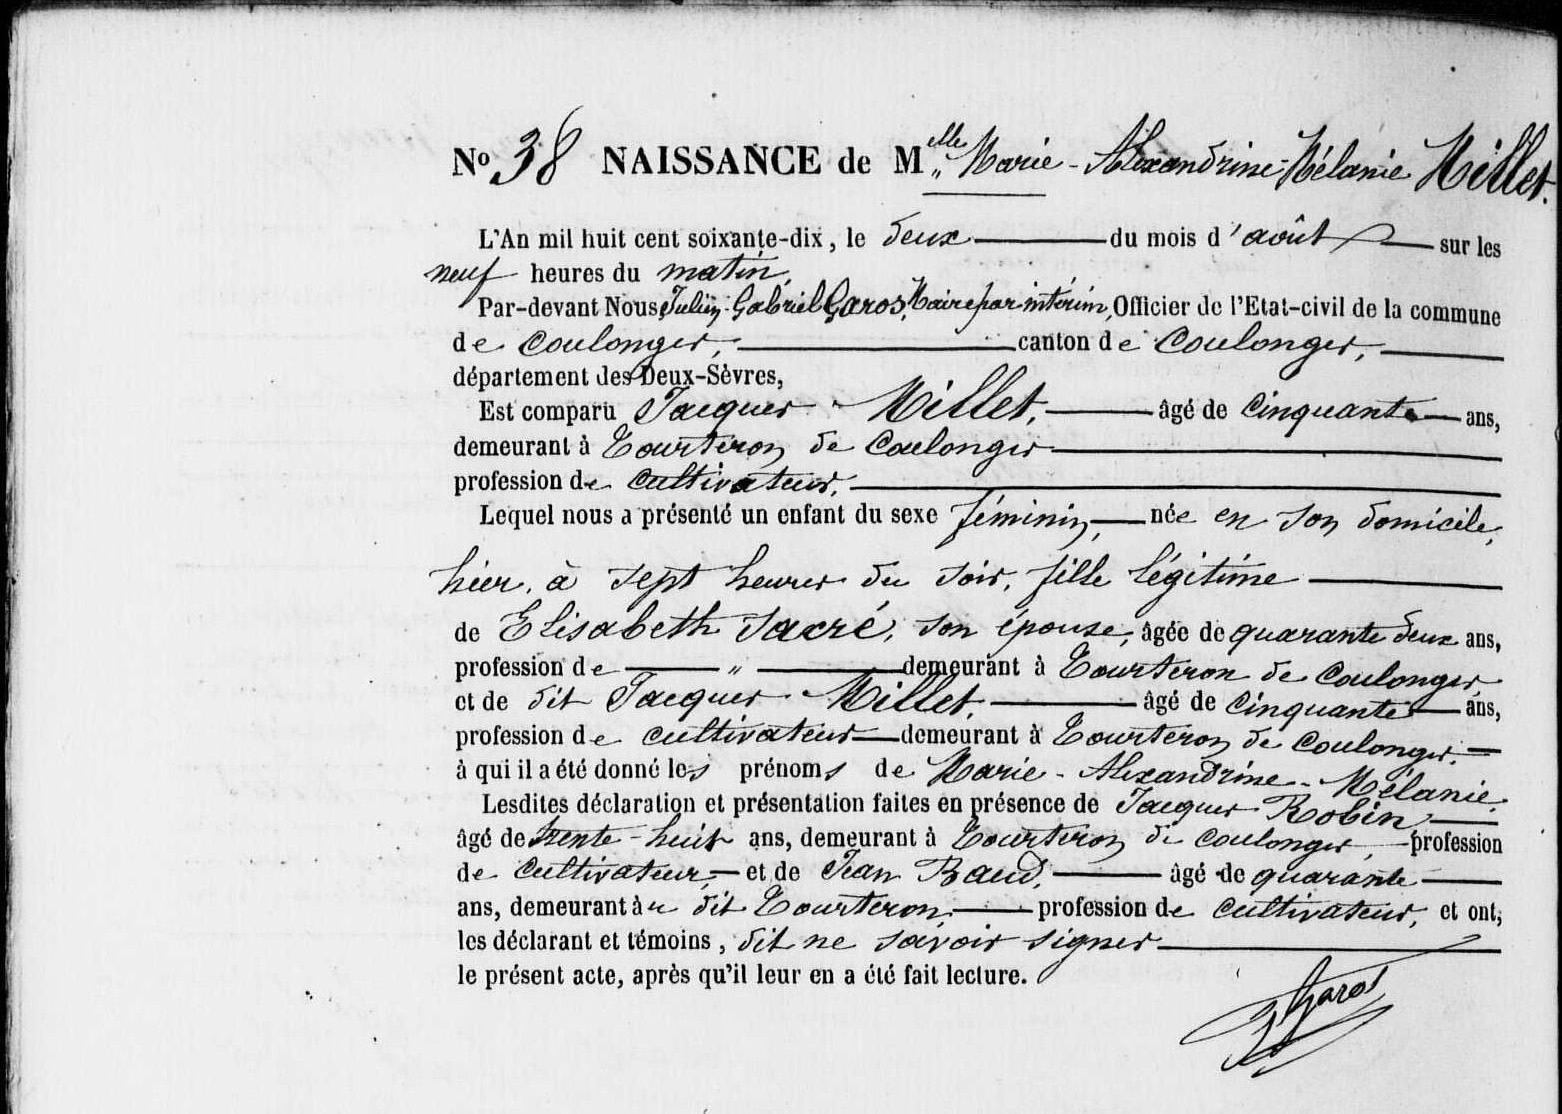 No 38 NAISSANCE de Melle Marie - Alexandrine - Mélanie Millet.
L'An mil huit cent soixante-dix, le deux du mois d'août sur les
neuf heures du matin,
Par-devant Nous Julien Gabriel Garos, Maire par intérim, Officier de l'Etat-civil de la commune
de Coulonges, canton de Coulonges,
département des Deux-Sèvres,
Est comparu Jacques Millet, âgé de cinquante ans,
demeurant à Tourteron de Coulonges
profession de cultivateur,
Lequel nous a présenté un enfant du sexe féminin, née en son domicile,
hier, à sept heures du soir, fille légitime
de Elisabeth Sacré, son épouse, âgée de quarante deux ans,
profession de " demeurant à Tourteron de Coulonges,
et de dit Jacques Millet, âgé de cinquante ans,
profession de cultivateur demeurant à Tourteron de Coulonges.
à qui il a été donné les prénoms de Marie - Alexandrine - Mélanie.
Lesdites déclaration et présentation faites en présence de Jacques Robin
âgé de trente-huit ans, demeurant à Tourteron de Coulonges, profession
de cultivateur, et de Jean Baud, âgé de quarante
ans, demeurant au dit Tourteron, profession de cultivateur, et ont,
les déclarant et témoins, dit ne savoir signer
le présent acte, après qu'il leur en a été fait lecture.
Garos